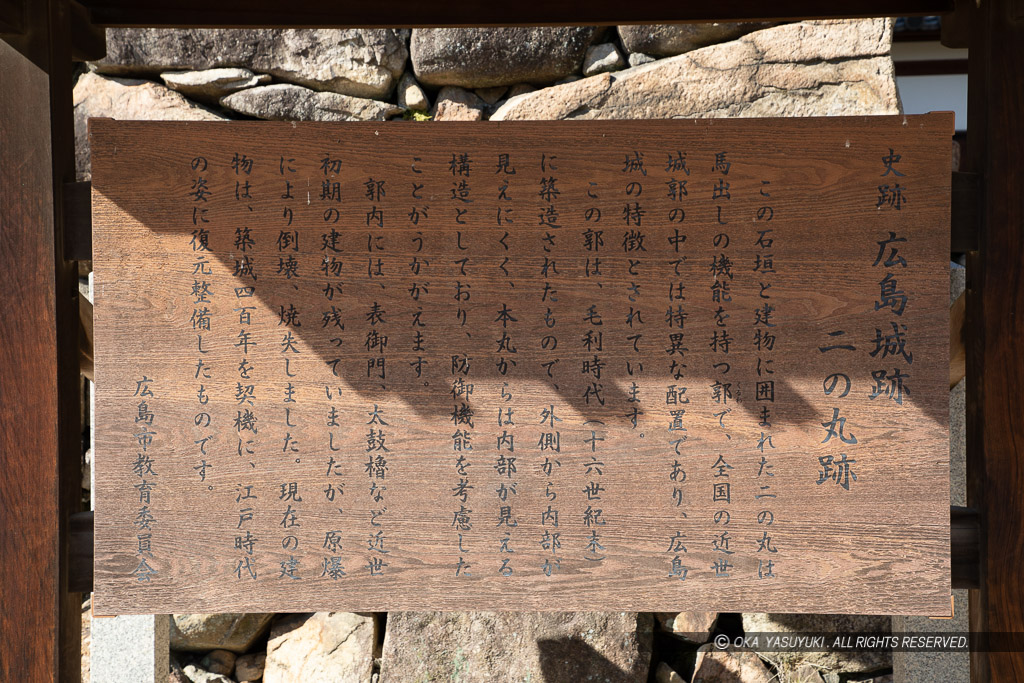 史跡 広島城跡
二の丸跡
この石垣と建物に囲まれた二の丸は
馬出しの機能を持つ郭で、全国の近世
城郭の中では特異な配置であり、広島
城の特徴とされています。
この郭は、毛利時代(十六世紀末)
に築造されたもので、外側から内部が
見えにくく、本丸からは内部が見える
構造としており、防御機能を考慮した
ことがうかがえます。
郭内には、表御門、太鼓櫓など近世
初期の建物が残っていましたが、原爆
により倒壊、焼失しました。現在の建
物は、築城四百年を契機に、江戸時代
の姿に復元整備したものです。
広島市教育委員会
© OKA YASUYUKI. ALL RIGHTS RESERVED.